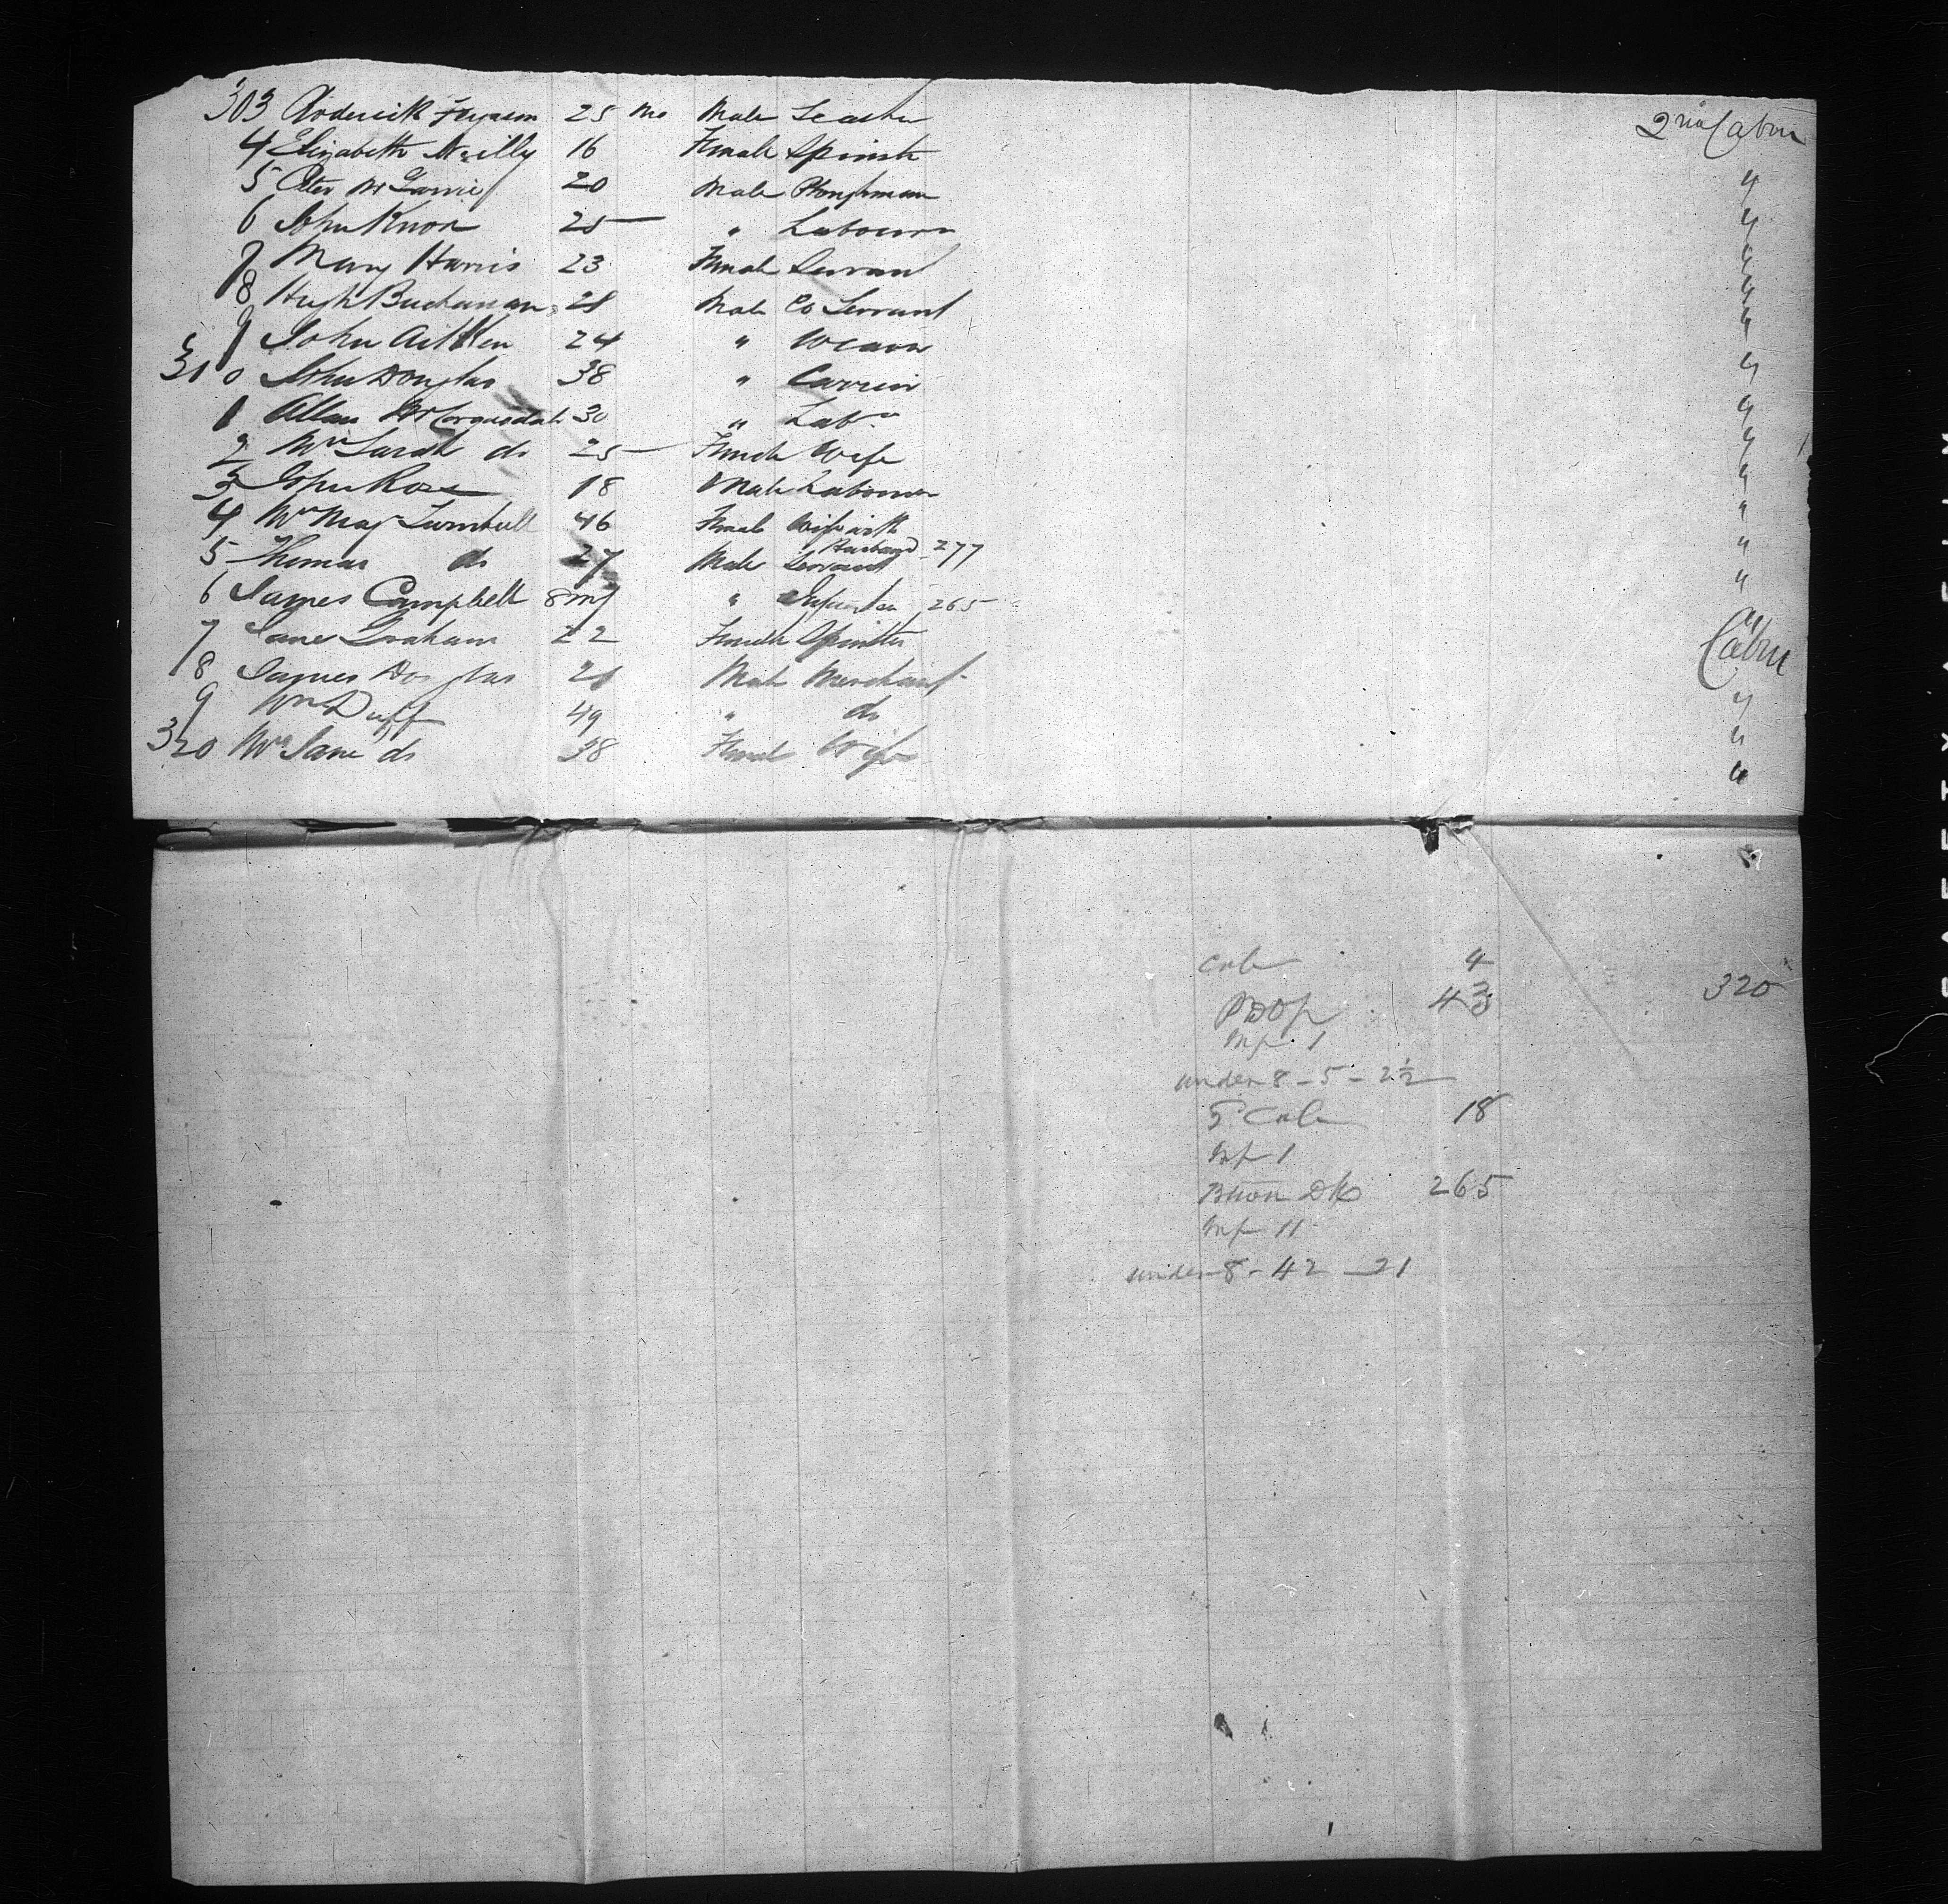 303 Roderick Ferguson 25 mo Male Teacher 2nd Cabin
4 Elizabeth Neilly 16 Female Spinster "
5 Peter McGarvie 20 Male Ploughman "
6 John Knox 25 " Labourer "
7 Mary Harris 23 Female Servant "
8 Hugh Buchanan 28 Male Co Servant "
9 John Aitken 24 " Weaver "
310 John Douglas 38 " Currier "
1 Allan McCorquodale 30 " Labr "
2 Mrs Sarah do 25 Female Wife "
3 John Ross 18 Male Labourer "
4 Mrs Mag Turnbull 46 Female Wife with Husband 277 "
5 Thomas do 27 Male Servant "
6 James Campbell 8 mo " Infant 265 "
7 Jane Graham 22 Female Spinster "
8 James Douglas 28 Male Merchant Cabin
9 Wm Duff 49 " do "
320 Mrs Jane do 38 Female Wife "
Cab 4
43 320
Inf. 1
under 8 - 5 - 2½
Cab 18
Inf 1
265
Inf 11
under 8 - 42 - 21